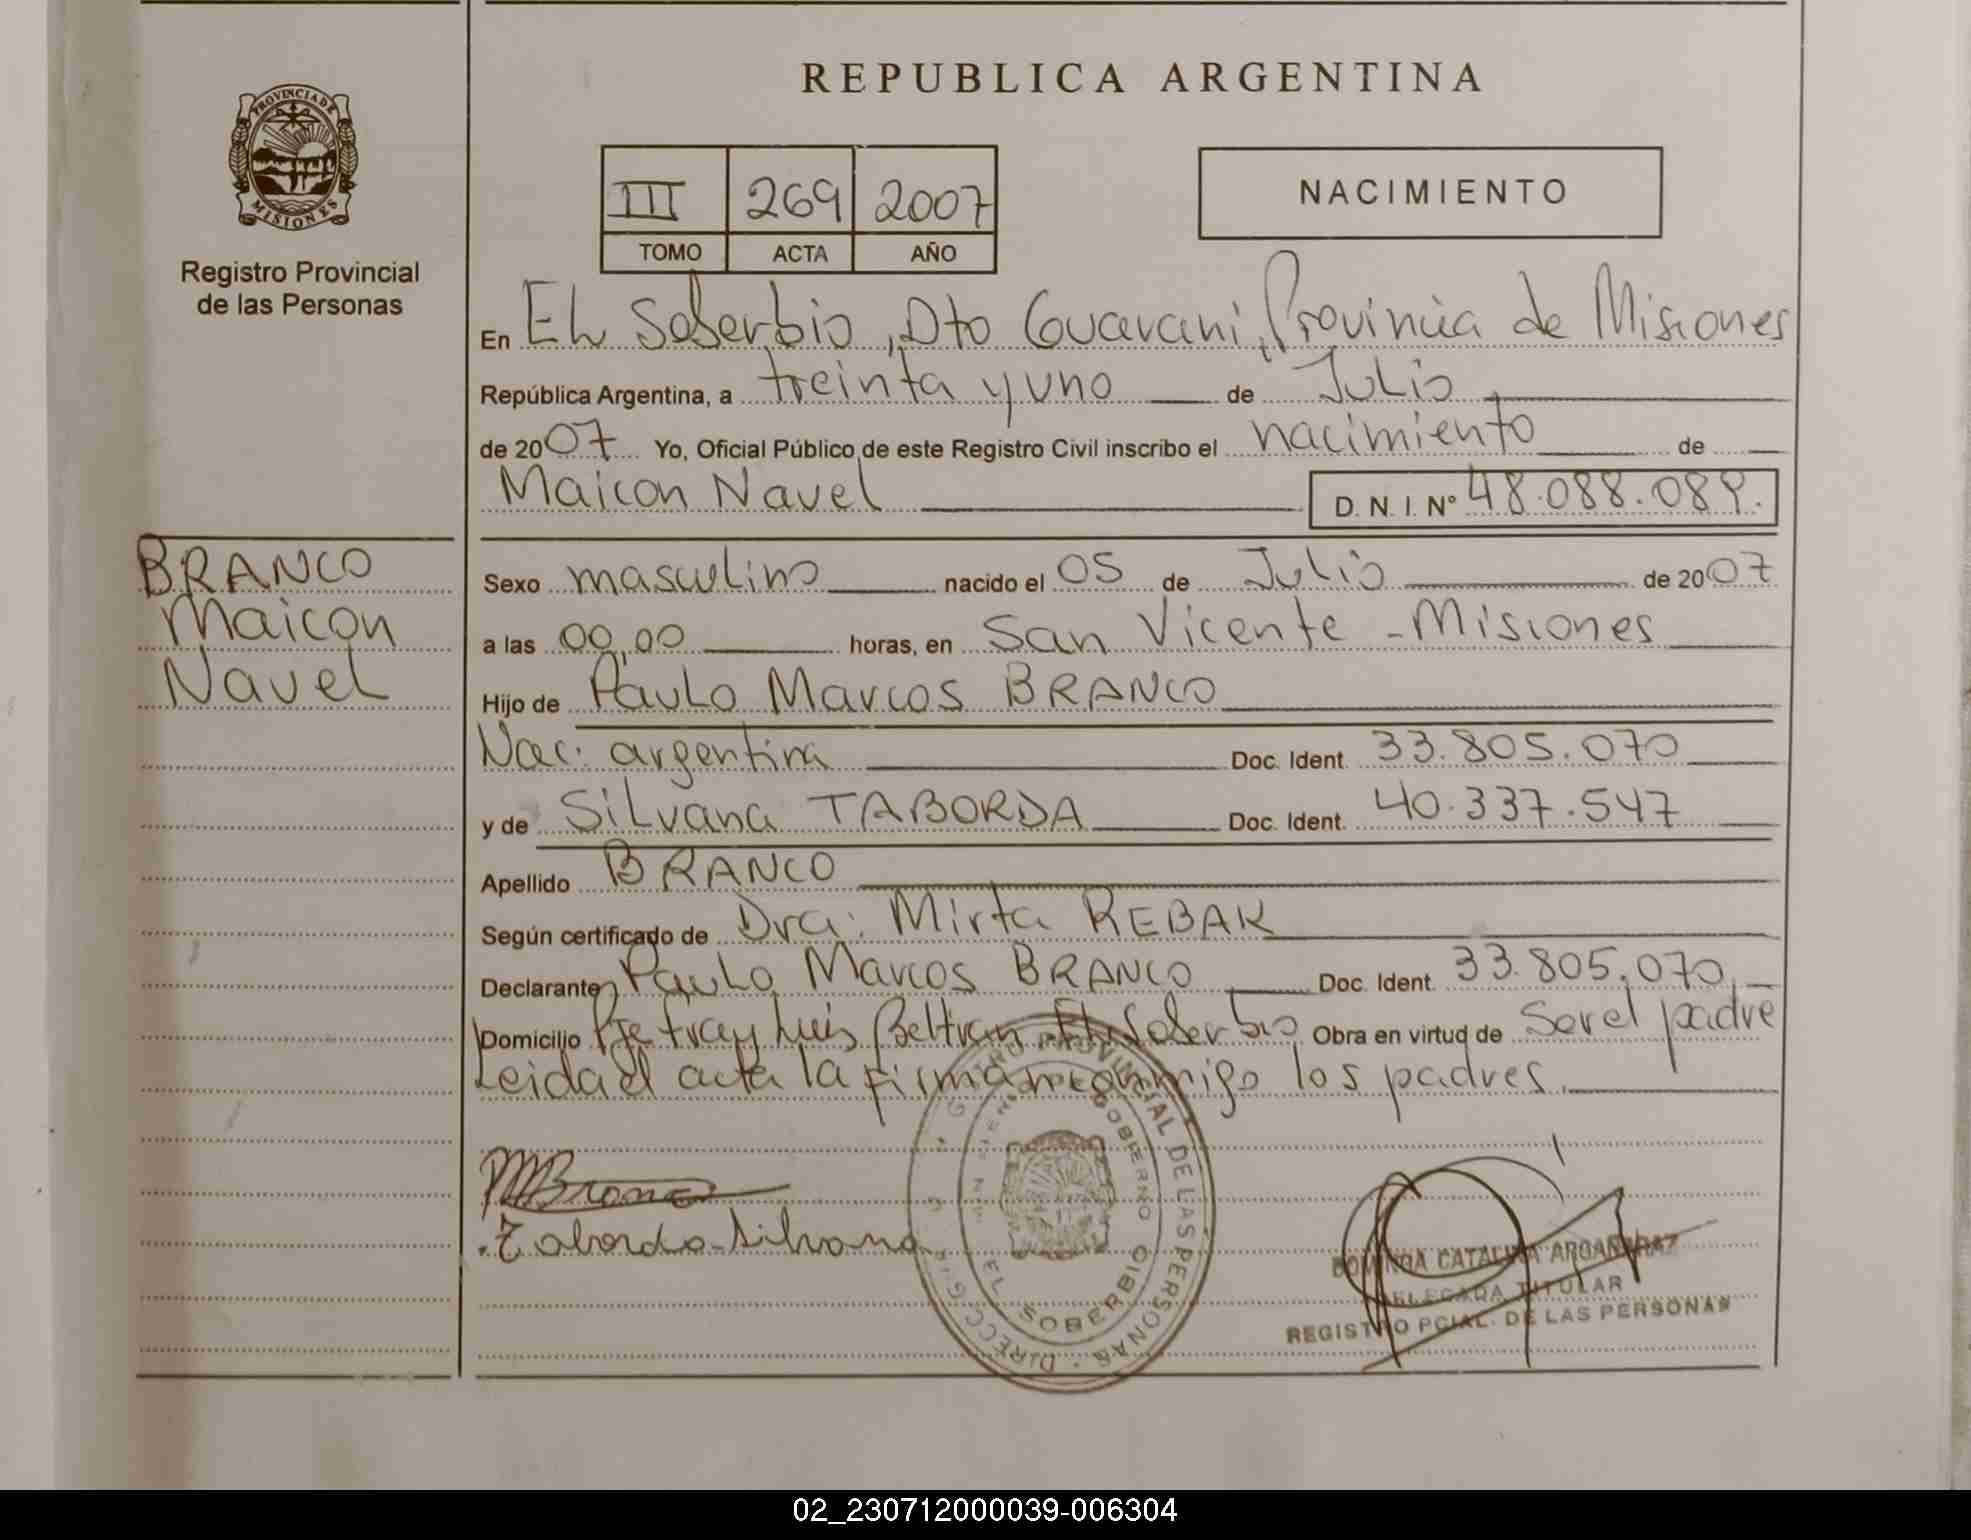 REPUBLICA ARGENTINA
PROVINCIA DE
MISIONES
Registro Provincial
de las Personas
III 269 2007
TOMO ACTA AÑO
NACIMIENTO
En EL Soberbio, Dto Guarani, Provincia de Misiones
República Argentina, a treinta y uno de Julio
de 2007 Yo, Oficial Público de este Registro Civil inscribo el nacimiento de
Maicon Navel D. N. I. Nº 48.088.089.
BRANCO
Maicon
Navel
Sexo masculino nacido el 05 de Julio de 2007
a las 00,00 horas, en San Vicente - Misiones
Hijo de Paulo Marcos BRANCO
Nac: argentina Doc. Ident. 33.805.070
y de Silvana TABORDA Doc. Ident. 40.337.547
Apellido BRANCO
Según certificado de Dra: Mirta REBAK
Declarante Paulo Marcos BRANCO Doc. Ident. 33.805.070
Domicilio Pje fray Luis Beltran El Soberbio Obra en virtud de Ser el padre
Leida el acta la firman conmigo los padres
MBranco
Taborda Silvana
PROVINCIAL DE LAS PERSONAS
GOBIERNO
EL SOBERBIO
CATALINA ARGAÑARAZ
DELEGADA TITULAR
REGISTRO PCIAL. DE LAS PERSONAS
02_230712000039-006304